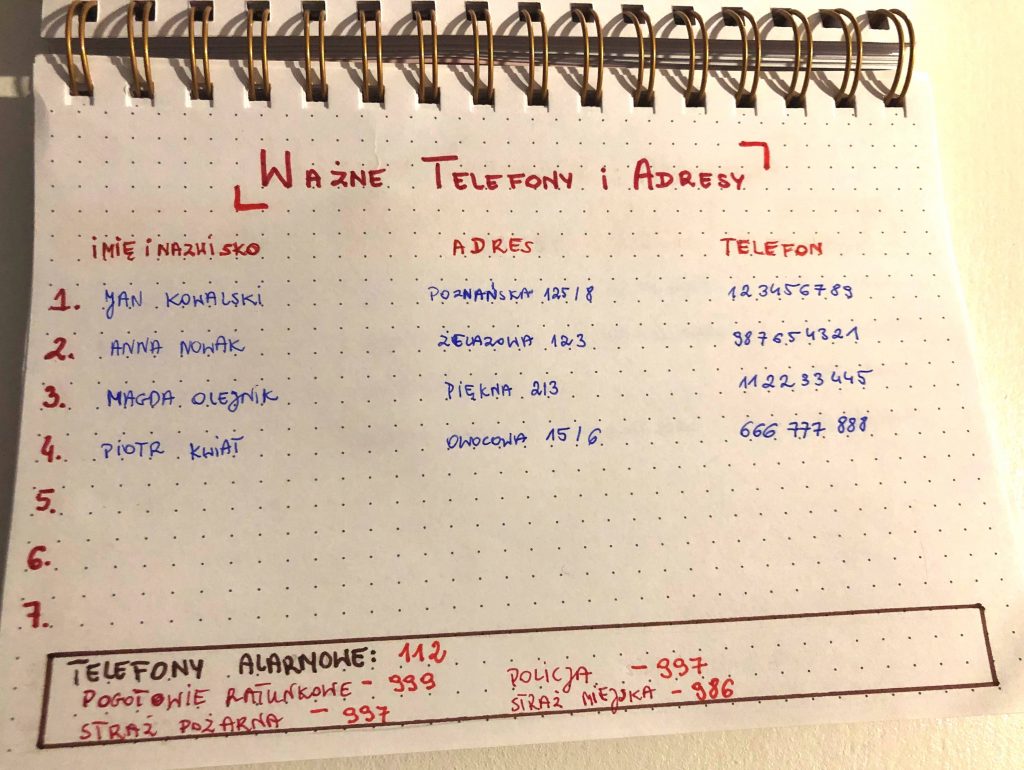 WAŻNE TELEFONY i ADRESY
iMIĘ i NAZWiSKO ADRES TELEFON
1. JAN KOWALSKI POZNAŃSKA 125/8 123456789
2. ANNA NOWAK ŻELAZOWA 123 987654321
3. MAGDA OLEJNIK PIĘKNA 213 112233445
4. PIOTR KWIAT OWOCOWA 15/6 666 777 888
5.
6.
7.
TELEFONY ALARMOWE: 112
POGOTOWIE RATUNKOWE - 999 POLICJA - 997
STRAŻ POŻARNA - 997 STRAŻ MIEJSKA - 986